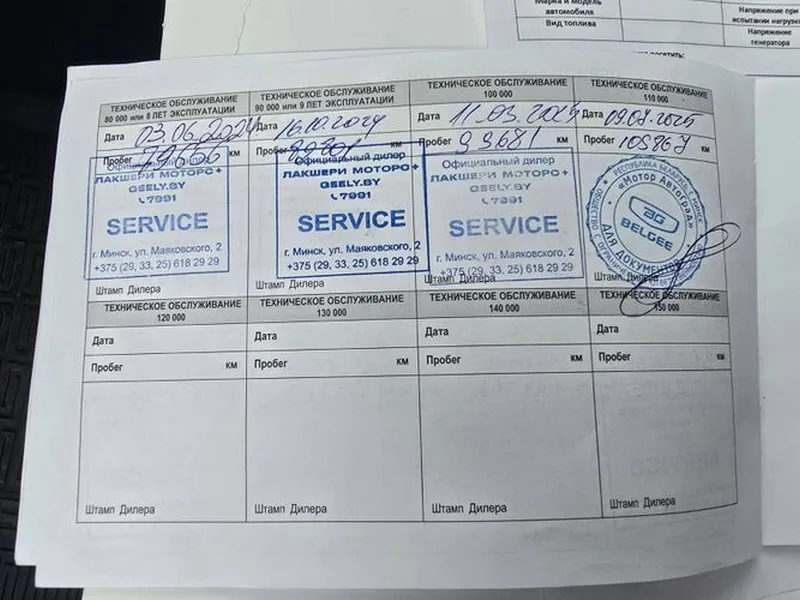 Марка и модель
автомобиля
Вид топлива
Напряжение при
испытании нагрузкой
Напряжение
генератора
ТЕХНИЧЕСКОЕ ОБСЛУЖИВАНИЕ
80 000 или 8 ЛЕТ ЭКСПЛУАТАЦИИ
Дата 03.06.2024
Пробег км
Официальный дилер
ЛАКШЕРИ МОТОРС+
GEELY.BY
7991
SERVICE
г. Минск, ул. Маяковского, 2
+375 (29, 33, 25) 618 29 29
Штамп Дилера
ТЕХНИЧЕСКОЕ ОБСЛУЖИВАНИЕ
90 000 или 9 ЛЕТ ЭКСПЛУАТАЦИИ
Дата 16.10.2024
Пробег км
Официальный дилер
ЛАКШЕРИ МОТОРС+
GEELY.BY
7991
SERVICE
г. Минск, ул. Маяковского, 2
+375 (29, 33, 25) 618 29 29
Штамп Дилера
ТЕХНИЧЕСКОЕ ОБСЛУЖИВАНИЕ
100 000
Дата 11.03.2025
Пробег 99681 км
Официальный дилер
ЛАКШЕРИ МОТОРС+
GEELY.BY
7991
SERVICE
г. Минск, ул. Маяковского, 2
+375 (29, 33, 25) 618 29 29
Штамп Дилера
ТЕХНИЧЕСКОЕ ОБСЛУЖИВАНИЕ
110 000
Дата 09.07.2025
Пробег 105867 км
РЕСПУБЛИКА БЕЛАРУСЬ, Г. МИНСК
BELGEE
ДЛЯ ДОКУМЕНТОВ
Штамп Дилера
ТЕХНИЧЕСКОЕ ОБСЛУЖИВАНИЕ
120 000
Дата
Пробег км
Штамп Дилера
ТЕХНИЧЕСКОЕ ОБСЛУЖИВАНИЕ
130 000
Дата
Пробег км
Штамп Дилера
ТЕХНИЧЕСКОЕ ОБСЛУЖИВАНИЕ
140 000
Дата
Пробег км
Штамп Дилера
ТЕХНИЧЕСКОЕ ОБСЛУЖИВАНИЕ
150 000
Дата
Пробег км
Штамп Дилера